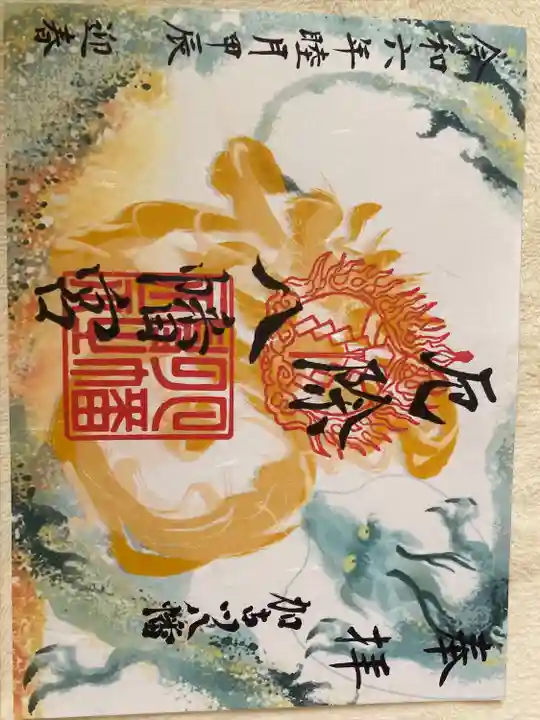 奉拝
加古川八幡
厄除
八幡宮
八幡
令和六年睦月甲辰迎春